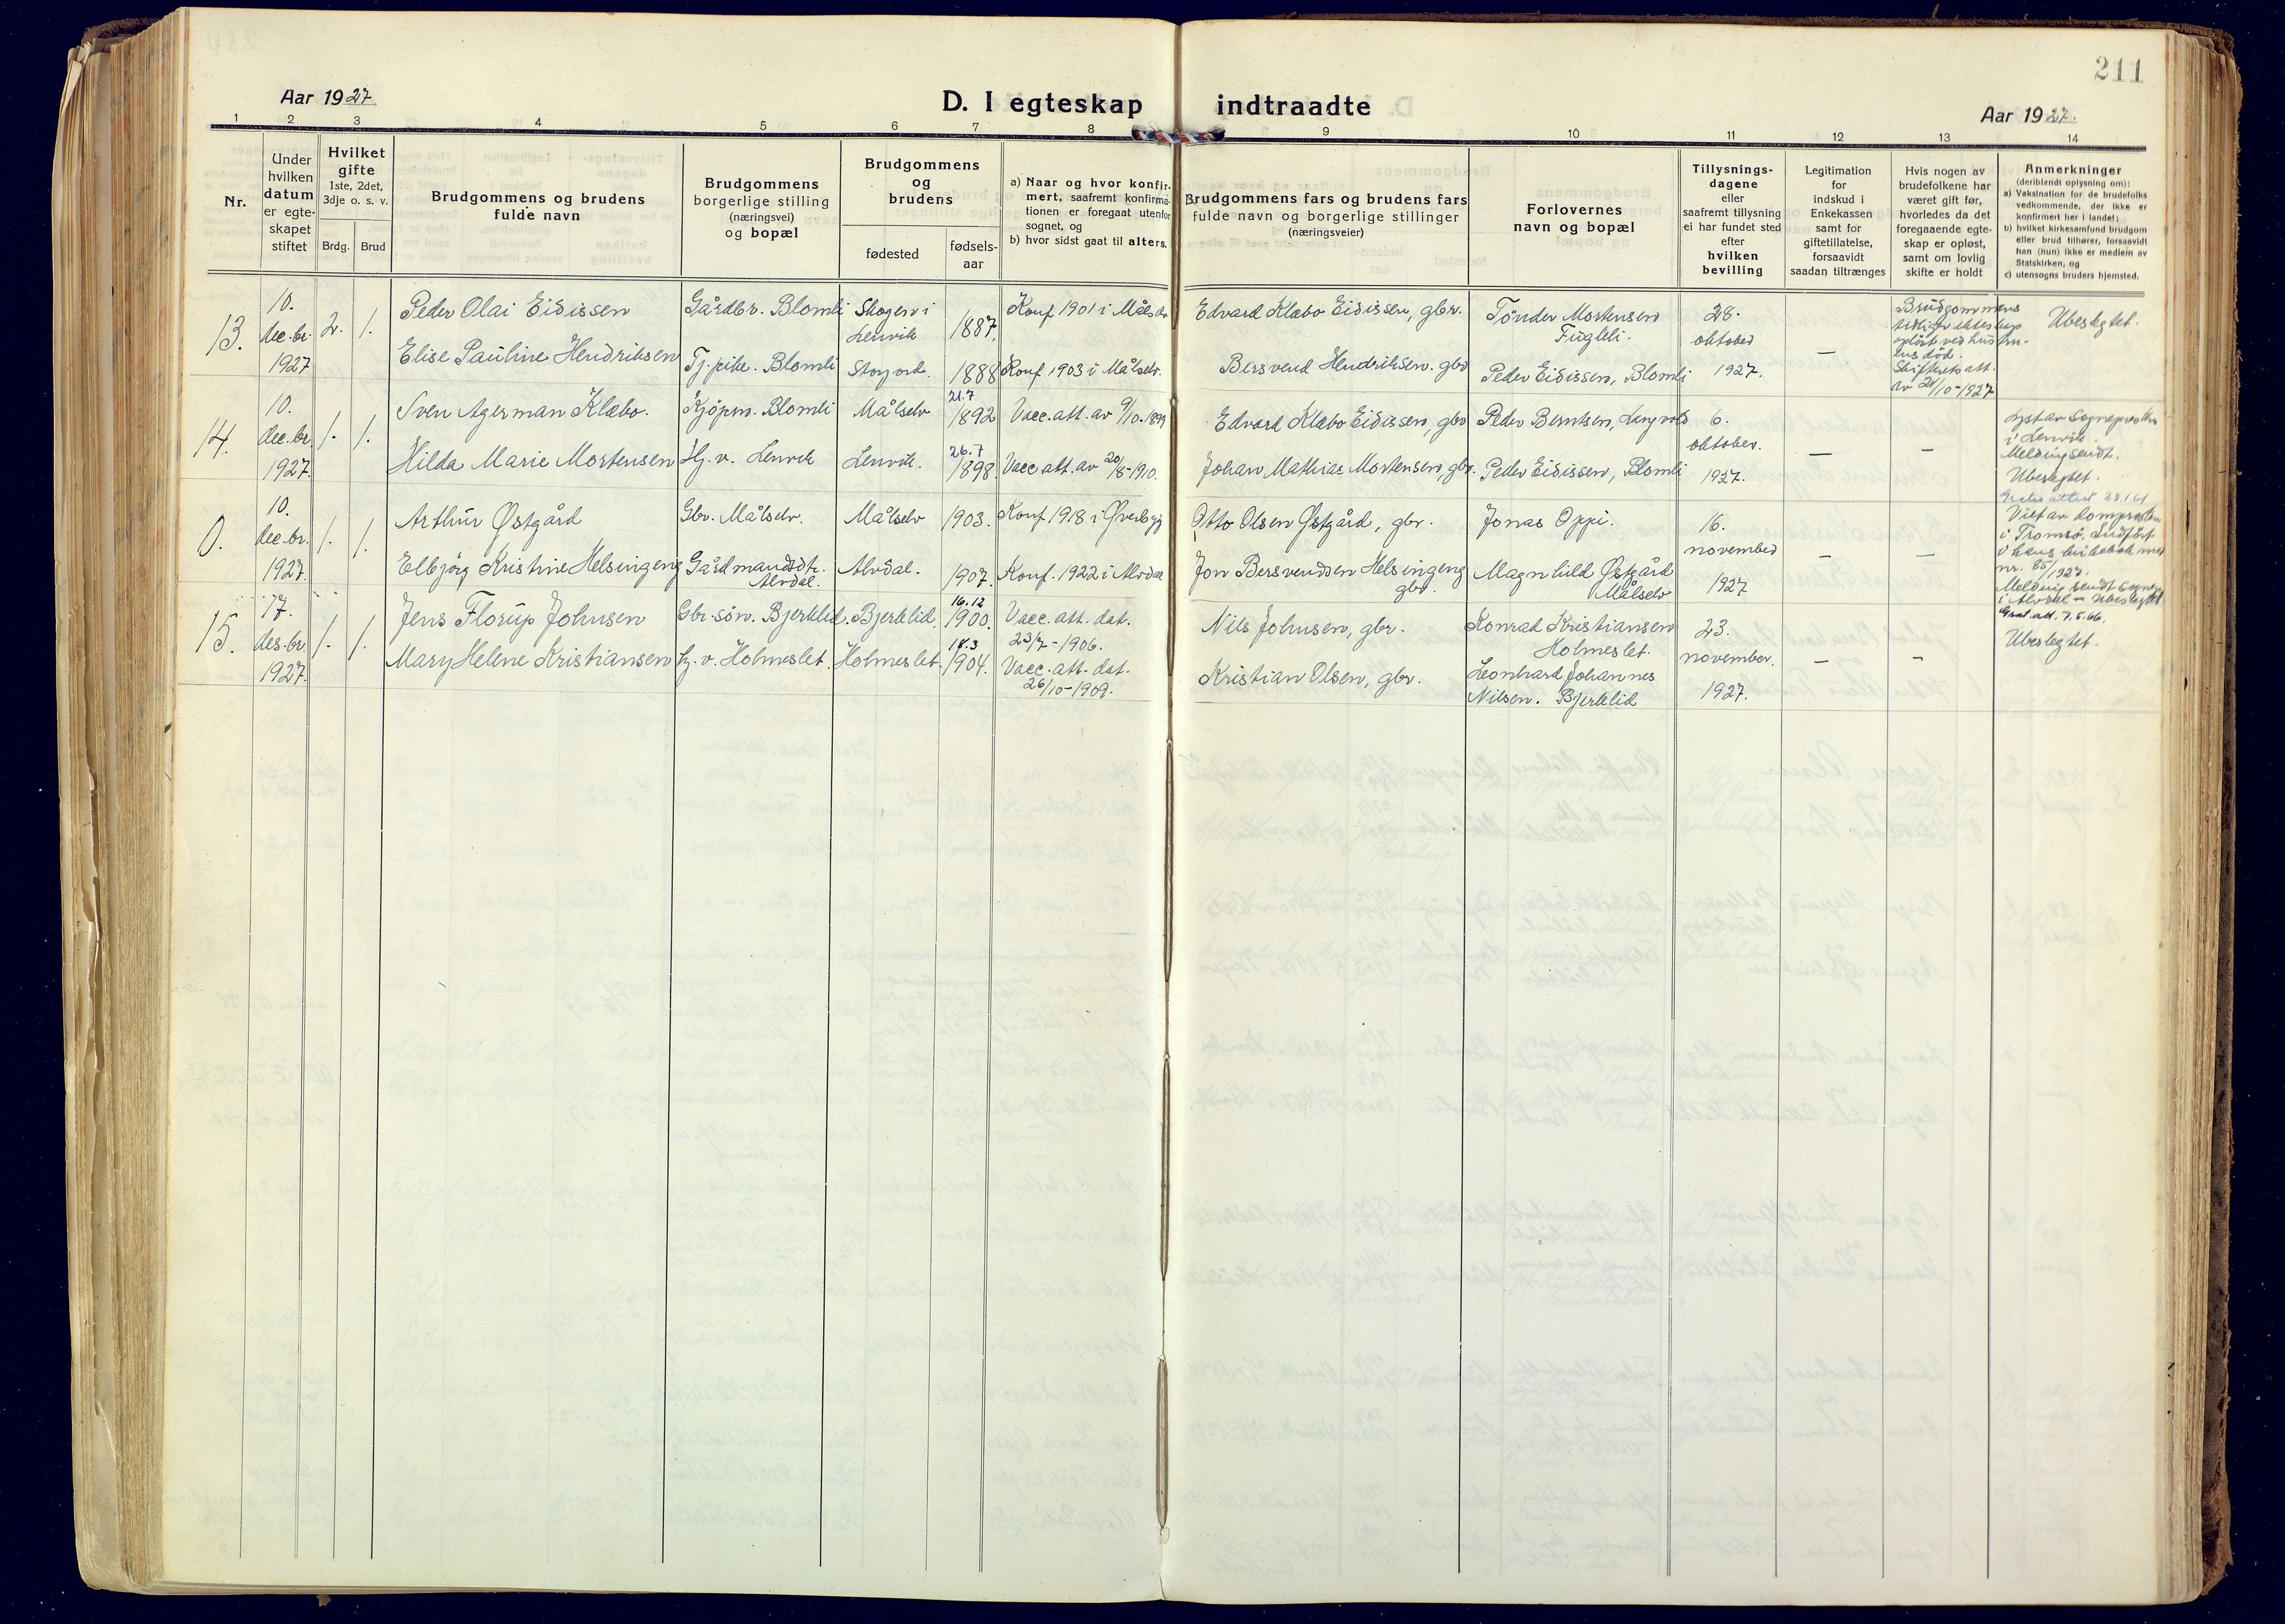 211
Aar 1927
D. I egteskap indtraadte
Aar 1927.
1 2 3 4 5 6 7 8 9 10 11 12 13 14
Nr.
Under
hvilken
datum
er egte-
skapet
stiftet
Hvilket
gifte
1ste, 2det,
3dje o. s. v.
Brdg. Brud
Brudgommens og brudens
fulde navn
Brudgommens
borgerlige stilling
(næringsvei)
og bopæl
Brudgommens
og
brudens
fødested
fødsels-
aar
a) Naar og hvor konfir-
mert, saafremt konfirma-
tionen er foregaat utenfor
sognet, og
b) hvor sidst gaat til alters.
Brudgommens fars og brudens fars
fulde navn og borgerlige stillinger
(næringsveier)
Forlovernes
navn og bopæl
Tillysnings-
dagene
eller
saafremt tillysning
ei har fundet sted
efter
hvilken
bevilling
Legitimation
for
indskud i
Enkekassen
samt for
giftetillatelse,
forsaavidt
saadan tiltrænges
Hvis nogen av
brudefolkene har
været gift før,
hvorledes da det
foregaaende egte-
skap er opløst,
samt om lovlig
skifte er holdt
Anmerkninger
(deriblandt oplysning om):
a) Vaksination for de brudefolks
vedkommende, der ikke er
konfirmert her i landet;
b) hvilket kirkesamfund brudgom
eller brud tilhører, forsaavidt
han (hun) ikke er medlem av
Statskirken, og
c) utensogns bruders hjemsted.
13.
10.
dec.br.
1927
2. 1.
Peder Olai Eidissen
Elise Pauline Hendriksen
Gårdbr. Blomli
Tj.pike. Blomli
Skogen i
Lenvik
1887.
1888
Konf 1901 i Målselv
Konf 1903 i Målselv.
Edvard Klæbo Eidissen, gbr.
Bersvend Hendriksen. gbr
Tönder Mortensen
Fuglli.
Peder Eidissen, Blomli
28.
oktober
1927.
—
Brudgommens
tidligere ekteskap
opløst ved hustru-
ens död.
Skifterets att.
av 24/10-1927
Ubeslegtet.
14.
10.
dec.br.
1927.
1. 1.
Sven Agerman Klæbo.
Hilda Marie Mortensen
Kjöpm. Blomli
Hj. v. Lenvik
Målselv
Lenvik.
21.7
1892
26.7
1898.
Vacc. att. av 9/10-1899
Vacc att. av 20/8-1910.
Edvard Klæbo Eidissen, gbr
Johan Mathias Mortensen, gbr.
Peder Berntsen,
Peder Eidissen, Blomli
6.
oktober.
1927.
—
–
Lyst av Sognepresten
i Lenvik.
Melding sendt.
Ubeslegtet.
0.
10.
dec.br.
1927.
1. 1.
Arthur Østgård
Elbjörg Kristine Helsingeng
Gbr. Målselv.
Gårdmandsdtr.
Alvdal.
Målselv
Alvdal.
1903.
1907.
Konf 1918 i Øverbygd
Konf. 1922 i Alvdal
Otto Olsen Østgård, gbr.
Jon Bersvendsen Helsingeng
gbr.
Jonas Oppi.
Magnhild Østgård
Målselv
16.
november
1927
—
—
Gratis attest 23.1.61
Viet av domprosten
i Tromsö. Indfört
i hans kirkebok med
nr. 85/1927.
Melding sendt sognepr.
i Alvdal – Ubeslegtet
Grat. att. 7.5.66.
15.
17.
des.br.
1927.
1. 1.
Jens Florup Johnsen
Mary Helene Kristiansen
Gbr. sön. Bjerklid.
Hj. v. Holmeslet.
Bjerklid.
Holmeslet.
16.12
1900.
18.3
1904.
Vacc. att. dat.
23/7-1906.
Vacc. att. dat.
26/10-1909.
Nils Johnsen, gbr.
Kristian Olsen, gbr.
Konrad Kristiansen
Holmeslet.
Leonhard Johannes
Nilsen. Bjerklid
23.
november.
1927.
—
–
Ubeslegtet.